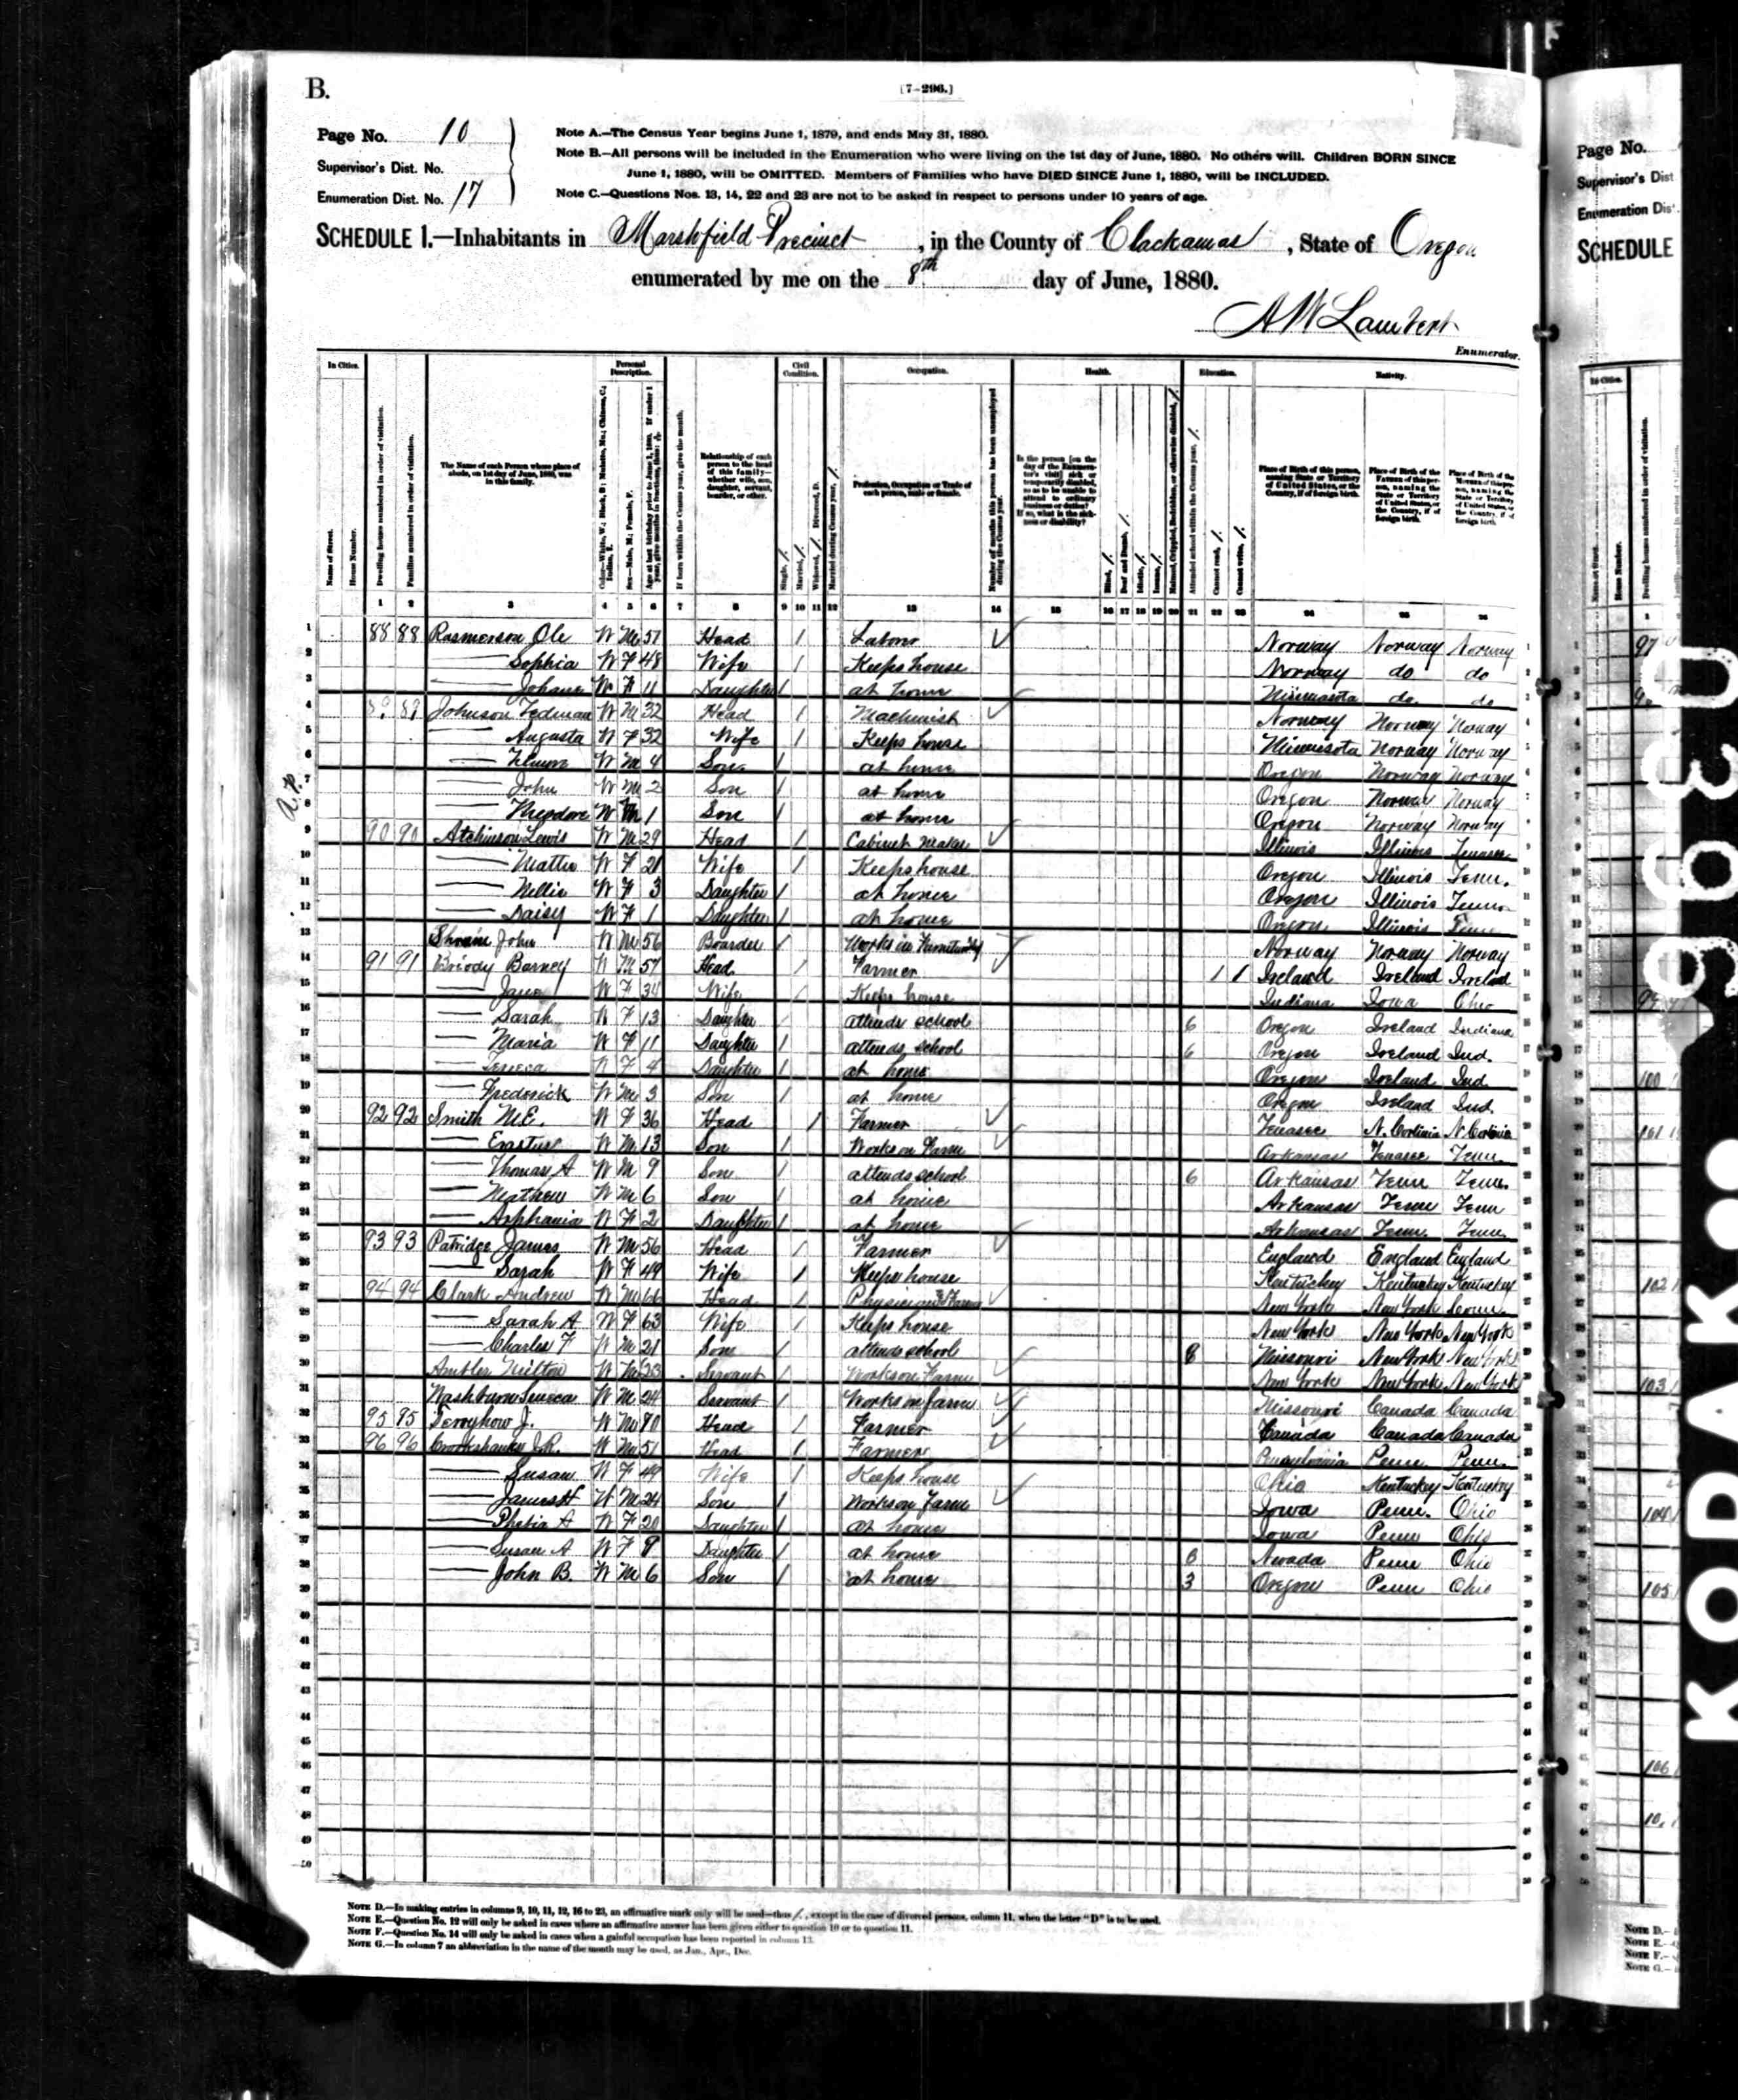 B.
[7-296.]
Page No. 10
Supervisor's Dist. No.
Enumeration Dist. No. 17
Note A.—The Census Year begins June 1, 1879, and ends May 31, 1880.
Note B.—All persons will be included in the Enumeration who were living on the 1st day of June, 1880. No others will. Children BORN SINCE
June 1, 1880, will be OMITTED. Members of Families who have DIED SINCE June 1, 1880, will be INCLUDED.
Note C.—Questions Nos. 13, 14, 22 and 23 are not to be asked in respect to persons under 10 years of age.
SCHEDULE 1.—Inhabitants in Marshfield Precinct, in the County of Clackamas, State of Oregon
enumerated by me on the 8th day of June, 1880.
A W Lambert
Enumerator.
In Cities. Personal Description. Civil Condition. Occupation. Health. Education. Nativity.
Name of Street. House Number. Dwelling houses numbered in order of visitation. Families numbered in order of visitation. The Name of each Person whose place of abode, on 1st day of June, 1880, was in this family. Relationship of each person to the head of this family—whether wife, son, daughter, servant, boarder, or other. Profession, Occupation or Trade of each person, male or female.
1 2 3 4 5 6 7 8 9 10 11 12 13 14 15 16 17 18 19 20 21 22 23 24 25 26
1 88 88 Rasmerson Ole W M 57 Head / Labour Norway Norway Norway
2 — Sophia W F 48 Wife / Keeps house Norway do do
3 — W F 11 Daughter / at home Minnesota do do
4 89 89 Johnson W M 32 Head / Machinist Norway Norway Norway
5 — Augusta W F 32 Wife / Keeps house Minnesota Norway Norway
6 — W M 4 Son / at home Oregon Norway Norway
7 — John W M 2 Son / at home Oregon Norway Norway
8 — Theodore W M 1 Son / at home Oregon Norway Norway
9 90 90 Atchinson Lewis W M 29 Head / Cabinet Maker Illinois Illinois
10 — Mattie W F 21 Wife / Keeps house Oregon Illinois Tenn.
11 — Nellie W F 3 Daughter / at home Oregon Illinois Tenn
12 — Daisy W F 1 Daughter / at home Oregon Illinois Tenn
13 John W M 56 Boarder / Works in Norway Norway Norway
14 91 91 Briody Barney W M 57 Head / Farmer 1 1 Ireland Ireland Ireland
15 — Jane W F 34 Wife / Keeps house Indiana Iowa Ohio
16 — Sarah W F 13 Daughter / attends school 6 Oregon Ireland Indiana
17 — Maria W F 11 Daughter / attends school 6 Oregon Ireland Ind.
18 — W F 4 Daughter / at home Oregon Ireland Ind
19 — Frederick W M 3 Son / at home Oregon Ireland Ind
20 92 92 Smith M.E. W F 36 Head / Farmer N. Carolina N. Carolina
21 — Erastus W M 13 Son / Works on Farm Arkansas Tenn.
22 — Thomas A W M 9 Son / attends school 6 Arkansas Tenn Tenn.
23 — Mathew W M 6 Son / at home Arkansas Tenn Tenn
24 — W F 2 Daughter / at home Arkansas Tenn. Tenn.
25 93 93 Patridge James W M 56 Head / Farmer England England England
26 — Sarah W F 49 Wife / Keeps house Kentucky Kentucky Kentucky
27 94 94 Clark Andrew W M 66 Head / Physician New York New York
28 — Sarah A W F 63 Wife / Keeps house New York New York New York
29 — Charles F W M 21 Son / attends school 8 Missouri New York New York
30 Ambler Milton W M 23 Servant / Works on Farm New York New York New York
31 Washburn Seneca W M 24 Servant / Works on farm Missouri Canada Canada
32 95 95 J. W M 80 Head / Farmer Canada Canada Canada
33 96 96 J.R. W M 51 Head / Farmer Pennsylvania Penn. Penn.
34 — Susan W F 49 Wife / Keeps house Ohio Kentucky Kentucky
35 — James H W M 24 Son / Works on Farm Iowa Penn. Ohio
36 — Phebia A W F 20 Daughter / at home Iowa Penn Ohio
37 — Susan A W F 9 Daughter / at home 6 Nevada Penn Ohio
38 — John B. W M 6 Son / at home 3 Oregon Penn Ohio
39
40
41
42
43
44
45
46
47
48
49
50
Note D.—In making entries in columns 9, 10, 11, 12, 16 to 23, an affirmative mark only will be used—thus /, except in the case of divorced persons, column 11, when the letter "D" is to be used.
Note E.—Question No. 12 will only be asked in cases where an affirmative answer has been given either to question 10 or to question 11.
Note F.—Question No. 14 will only be asked in cases when a gainful occupation has been reported in column 13.
Note G.—In column 7 an abbreviation in the name of the month may be used, as Jan., Apr., Dec.
Page No.
Supervisor's Dist
Enumeration Dis
SCHEDULE
97
100
101
102
103
104
105
106
Note D.—
Note E.—
Note F.—
Note G.—
KODAK